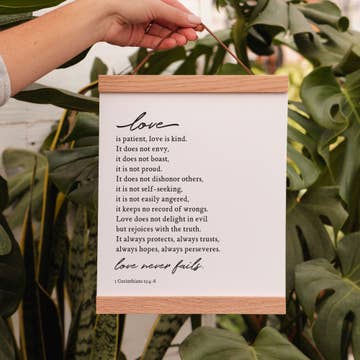 love
is patient, love is kind.
It does not envy,
it does not boast,
it is not proud.
It does not dishonor others,
it is not self-seeking,
it is not easily angered,
it keeps no record of wrongs.
Love does not delight in evil
but rejoices with the truth.
It always protects, always trusts,
always hopes, always perseveres.
love never fails.
1 Corinthians 13:4-8